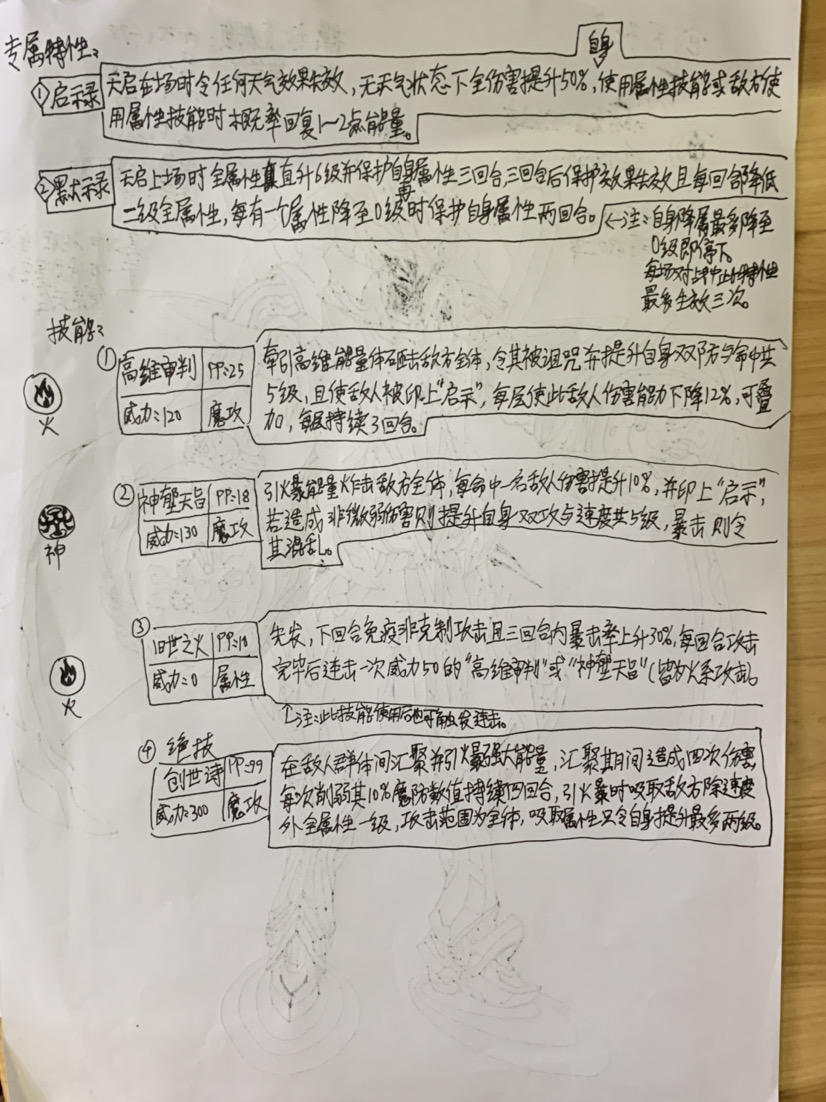 专属特性:
自身
①启示录
天启在场时令任何天气效果失效,无天气状态下全伤害提升50%,使用属性技能或敌方使
用属性技能时概率回复1~2点能量。
②默示录
天启上场时全属性直升6级并保护自身属性三回合,三回合后保护效果失效且每回合降低
二级全属性,每有一个属性降至0级时再保护自身属性两回合。
←注:自身降属最多降至
0级即停下。
每场对战中此特性
最多生效三次。
技能:
①
高维审判 PP:25
威力:120 魔攻
火
牵引高维能量体砸击敌方全体,令其被诅咒并提升自身双防与命中共
5级,且使敌人被印上“启示”,每层使此敌人伤害能力下降12%,可叠
加,每层持续3回合。
②
神塑天旨 PP:18
威力:130 魔攻
神
引爆能量炸击敌方全体,每命中一名敌人伤害提升10%,并印上“启示”,
若造成非微弱伤害则提升自身双攻与速度共5级,暴击则令
其混乱。
③
旧世之火 PP:10
威力:0 属性
火
先发,下回合免疫非克制攻击且三回合内暴击率上升30%,每回合攻击
完毕后连击一次威力50的“高维审判”或“神塑天旨”(皆为火系攻击)。
↑注:此技能使用后也可触发连击。
④ 绝技
创世诗 PP:99
威力:300 魔攻
在敌人群体间汇聚并引爆强大能量,汇聚期间造成四次伤害,
每次削弱其10%魔防数值持续四回合,引爆时吸取敌方除速度
外全属性一级,攻击范围为全体,吸取属性只令自身提升最多两级。